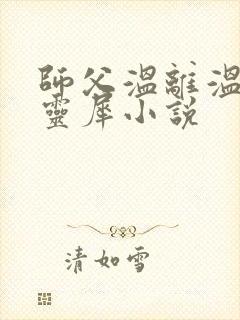 師父溫離溫
靈犀小說
清如雪